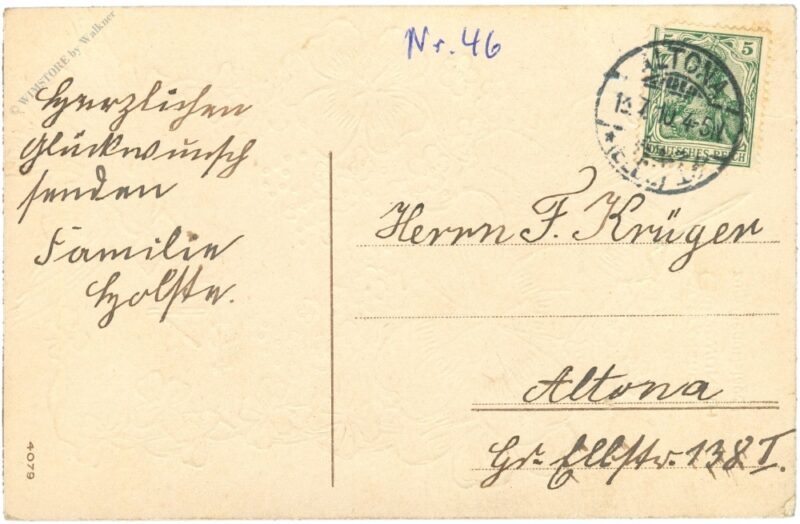 © WIMSTORE by Walkner
Nr. 46
Herzlichen
Glückwunsch
senden
Familie
Holste.
5 5
ALTONA
13.7.10.4-5N
* (ELBE) 1
DEUTSCHES REICH
Herrn F. Krüger
Altona
Gr. Elbstr. 138 I.
4079